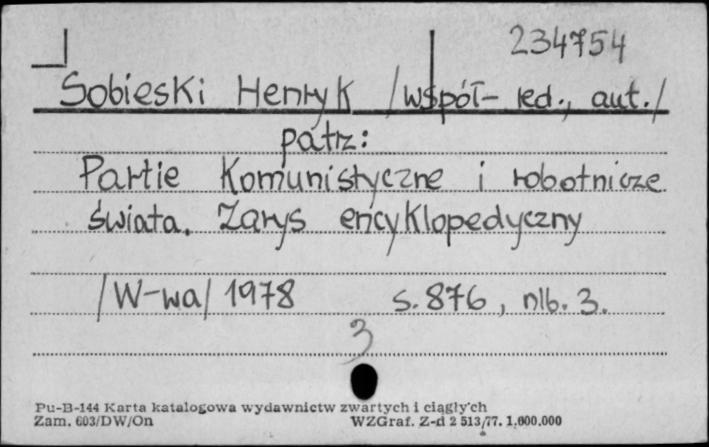 234754
Sobieski Henryk /współ- red., aut./
patrz:
Partie Komunistyczne i robotnicze
świata. Zarys encyklopedyczny
/W-wa/ 1978 s. 876, nlb. 3.
3
Pu-B-144 Karta katalogowa wydawnictw zwartych i ciągłych
Zam. 603/DW/On WZGraf. Z-d 2 513/77. 1.000.000